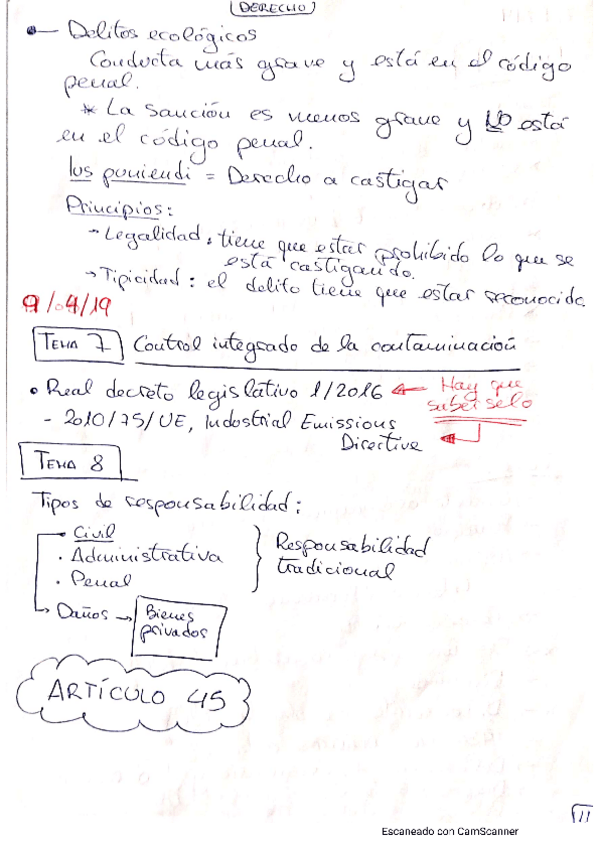 DERECHO
— Delitos ecológicos
Conducta más grave y está en el código
penal.
* La sanción es menos grave y NO está
en el código penal.
Ius poniendi = Derecho a castigar
Principios:
→ Legalidad: tiene que estar prohibido lo que se
está castigando.
→ Tipicidad: el delito tiene que estar reconocido.
9/04/19
TEMA 7 Control integrado de la contaminación
• Real decreto legislativo 1/2016 ← Hay que
subérselo
- 2010/75/UE, Industrial Emissions
Directive
TEMA 8
Tipos de responsabilidad:
• Civil
• Administrativa
• Penal
Responsabilidad
tradicional
Daños → Bienes
privados
ARTÍCULO 45
11
Escaneado con CamScanner